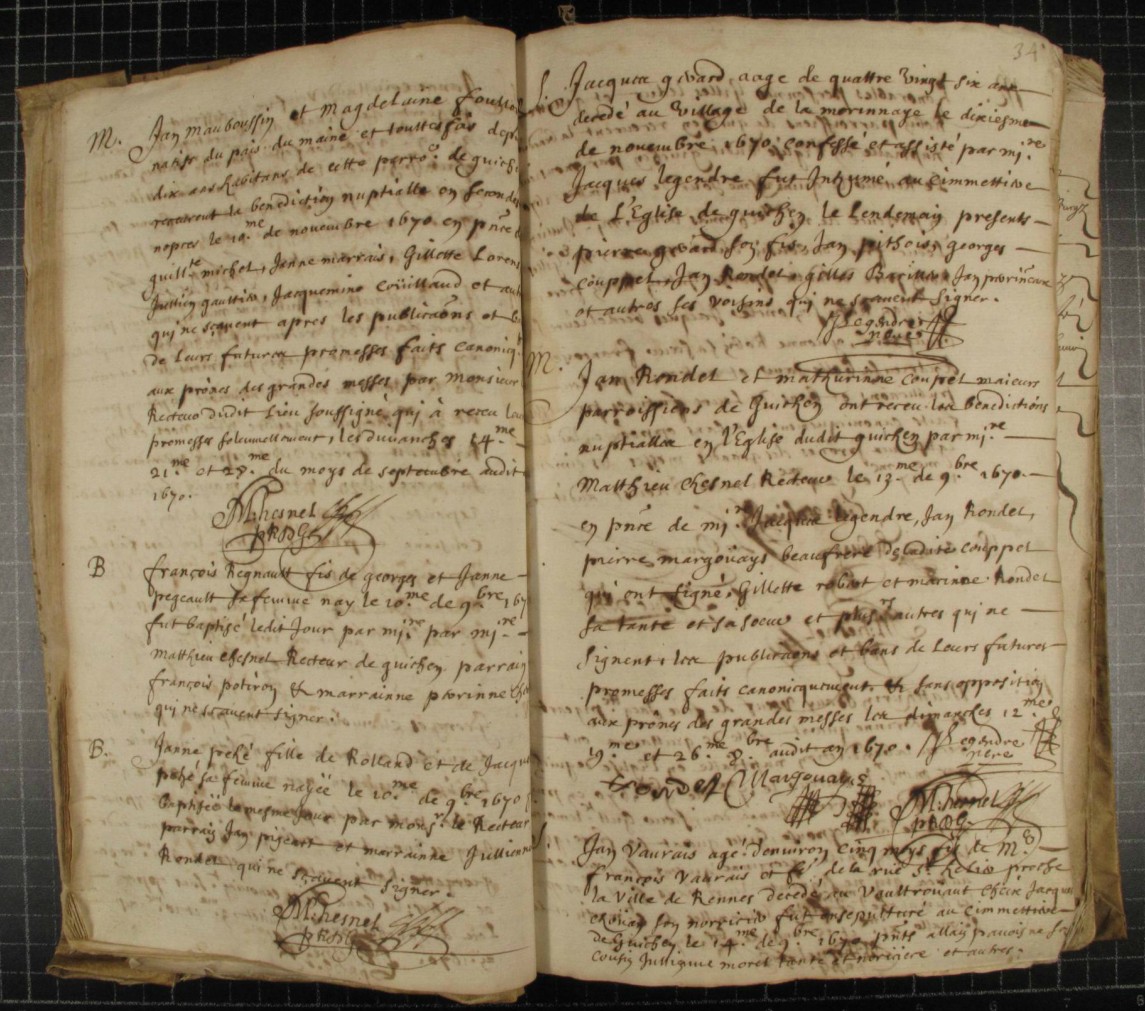 M. Jan Mauboussin et Magdelaine
natifs du païs du maine et touttesfois
dix ans habitans de cette parro. de guich
receurent la benediction nuptialle en secondes
nopces le 10.me de novembre 1670 en pnce
guill.te michel, Janne marrais, Gillette Lorens
Jullien gaultier, Jacquemine Coüillaud et aut
qui ne scavent apres les publicaons et b
de leurs futures promesses faits canoniq
aux prônes des grandes messes par Monsieur
Recteur dudit lieu soussigné qui à receu
promesses solemnellement, les dimanches 14.me
21.me et 28.me du moys de septembre audit
1670.
M. Chesnel
B françois Regnault fis de georges et Janne
pegeault sa femme nay le 10.me de 9.bre 167
fut baptisé ledit Jour par mi.re par mi.re
Matthieu chesnel Recteur de guichen parrain
françois potiron et marrainne perrinne
qui ne scavent signer.
B. Janne poché fille de Rolland et de Jacqu
poché sa femme nayée le 10.me de 9.bre 1670
baptisée le mesme Jour par mons.r le Recteur
parrain Jan pigeart et marrainne Jullienne
Rondel qui ne scavent signer.
M. Chesnel
34
S. Jacques gerard aage de quattre vingt six ans
decedé au village de la morinnaye le dixiesme
de novembre 1670 confessé et assisté par mi.re
Jacques legendre fut Inhumé au cimmettiere
de L'Eglise de guichen le Lendemain presents
pierre gerard son fis, Jan pithois, georges
couppel, Jan Rondel, gilles
et autres ses voisins qui ne scavent signer.
J Legendre
pbre
M. Jan Rondel et mathurinne Couppel maieurs
parroissiens de Guichen ont receu les benedictions
nuptialles en l'Eglise dudit guichen par mi.re
Matthieu Chesnel Recteur le 13.me de 9.bre 1670.
en pnce de mi.re Jacques legendre, Jan Rondel,
pierre margouays beaufrere de ladite couppel
qui ont signé, Gillette robert et marinne Rondel
sa tante et sa soeur et plus.rs autres qui ne
signent, les publicaons et bans de Leurs futures
promesses faits canonicquement et sans opposition
aux prônes des grandes messes les dimanches 12.me
19.me et 26.me 8.bre audit an 1670. J Legendre
pbre
rondel Margouays
M. Chesnel
S. Jan Vaurais agé d'environ cinq moys fis de M
françois Vaurais et de la rue S. helier proche
la Ville de Rennes decedé au Vaultrouault cheix Jacques
son norricier fut ensepulturé au cimmettiere
de Guichen le 14.me de 9.bre 1670 pnts allain
cousin Jullienne morel tante et norriciere et autres.